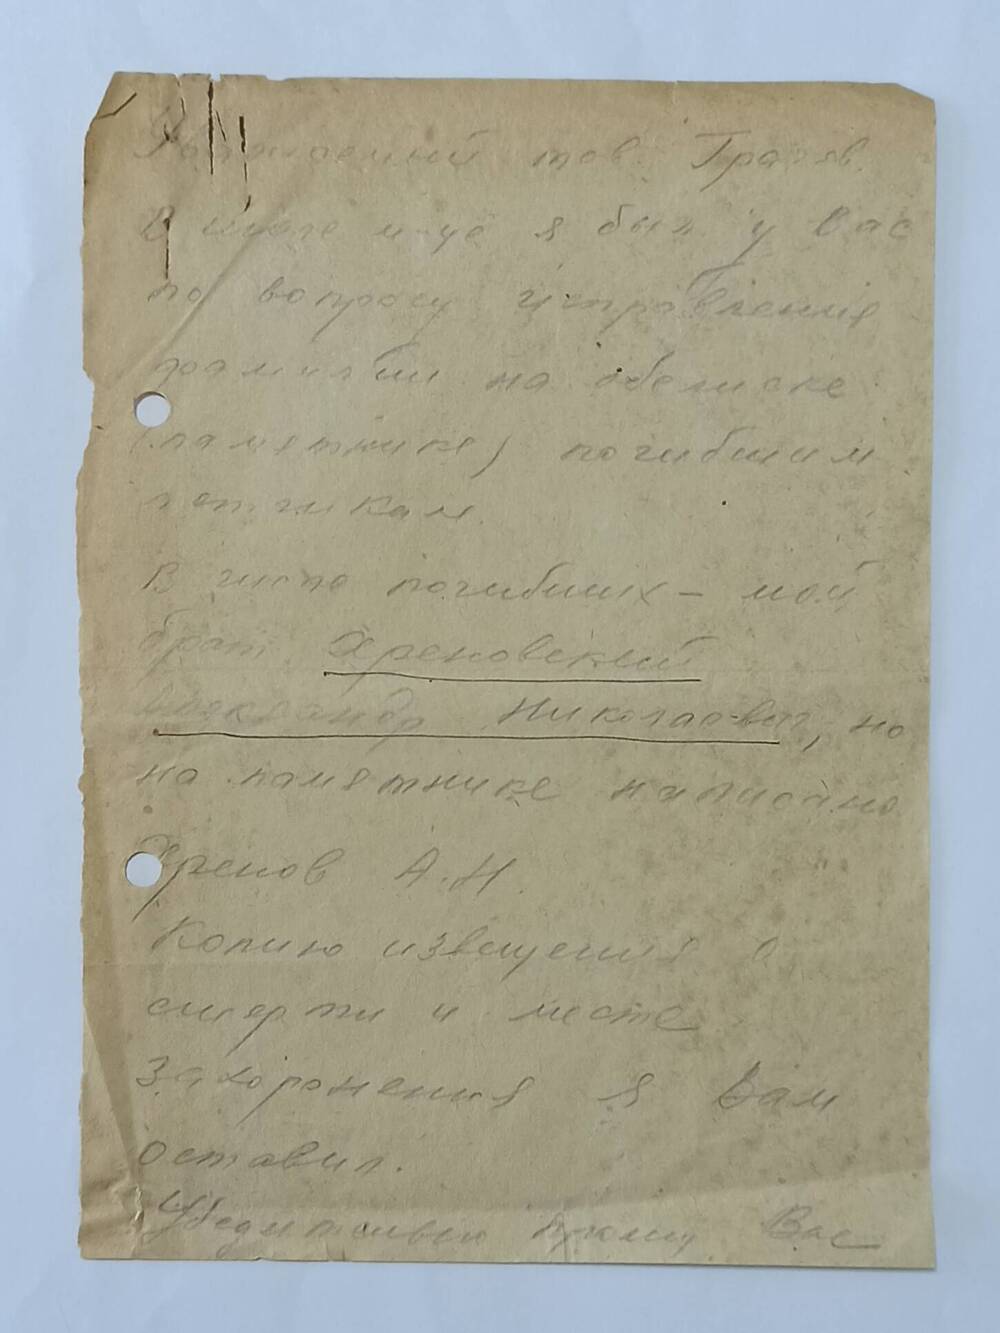 Уважаемый тов. Грачев.
В июле м-це я был у Вас
по вопросу исправления
фамилии на обелиске
(памятнике) погибшим
летчикам.
В числе погибших – мой
брат Хреновский
Александр Николаевич, но
на памятнике написано
Хренов А.Н.
Копию извещения о
смерти и месте
захоронения я Вам
оставил.
Убедительно прошу Вас